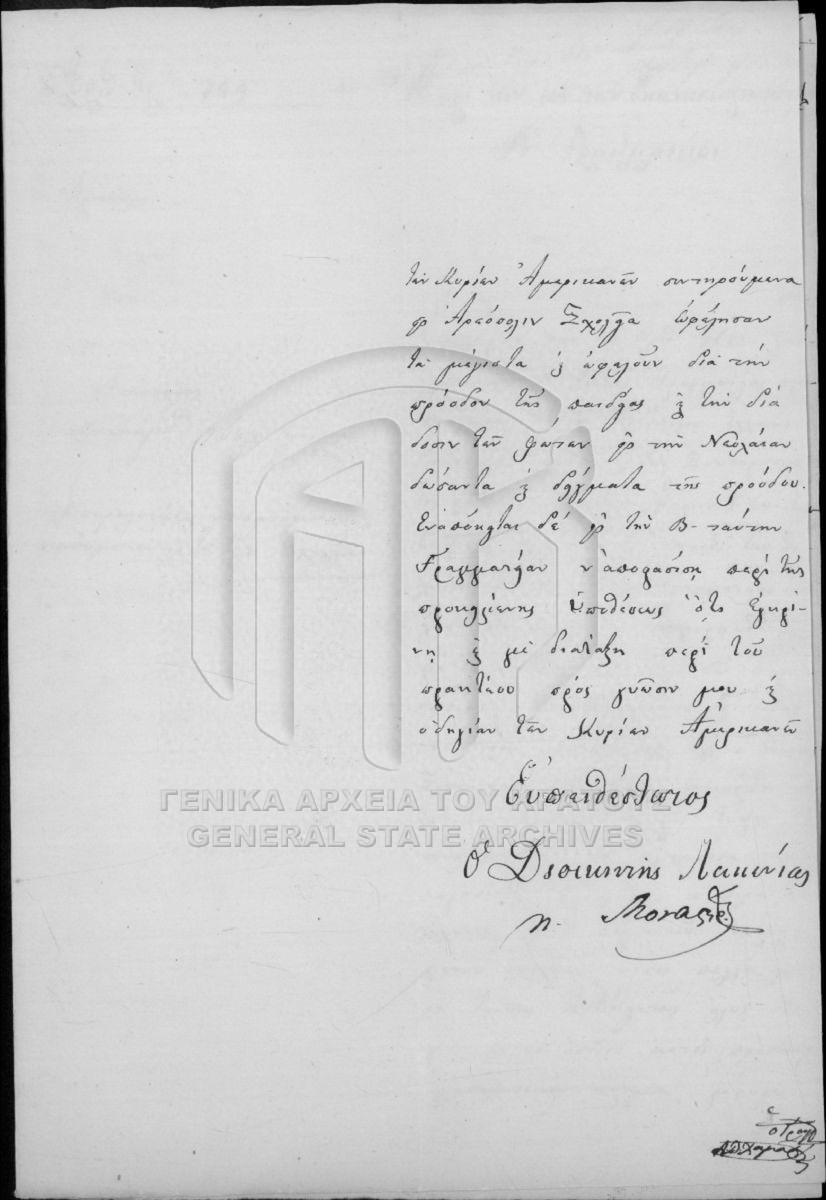 τῶν Κυρίων Ἀμερικανῶν συντηρούμενα
εἰς Ἀρεόπολιν Σχολεῖα ὠφέλησαν
τὰ μέγιστα καὶ ὠφελοῦν διὰ τὴν
πρόοδον τῆς παιδείας καὶ τὴν διά
δοσιν τῶν φώτων εἰς τὴν Νεολαίαν
δώσαντα καὶ δείγματα τῆς προόδου.
Ἐναπόκειται δέ εἰς τὴν Β- ταύτην
Γραμματείαν ν' ἀποφασίσῃ περὶ τῆς
προκειμένης ὑποθέσεως ὅ,τι ἐγκρί-
νῃ καὶ μὲ διατάξῃ περὶ τοῦ
πρακτέου πρὸς γνῶσιν μου καὶ
ὁδηγίαν τῶν Κυρίων Ἀμερικανῶν
Εὐπειθέστατος
Ὁ Διοικητής Λακωνίας
ΓΕΝΙΚΑ ΑΡΧΕΙΑ ΤΟΥ ΚΡΑΤΟΥΣ
GENERAL STATE ARCHIVES